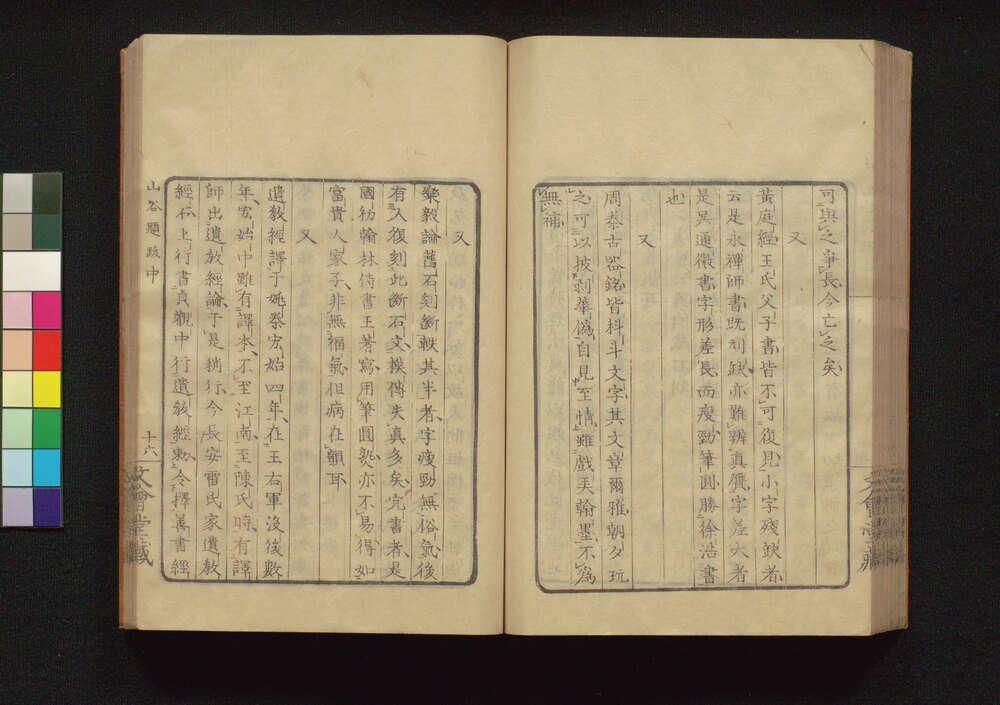 可與之爭長今亡之矣
又
黃庭經王氏父子書皆不可復見小字殘缺者
云是永禪師書既刓缺亦難辨真贋字差大者
是吳通微書字形差長而瘦勁筆圓勝徐浩書
也
又
周秦古器銘皆科斗文字其文章爾雅朝夕玩
之可以披剥華偽自見至情雖戲弄翰墨不爲
無補
文會堂藏
又
樂毅論舊石刻斷軼其半者字瘦勁無俗氣後
有人復刻此斷石文摸傳失真多矣完書者是
國初翰林侍書王著寫用筆圓熟亦不易得如
富貴人家子非無福氣但病在韻耳
又
遺教經譯于姚秦宏始四年在王右軍沒後數
年宏始中雖有譯本不至江南至陳氏時有譯
師出遺教經論于是稍行今長安雷氏家遺教
經石上行書貞觀中行遺敎經勅令擇善書經
山谷題跋中
十六
文會堂藏